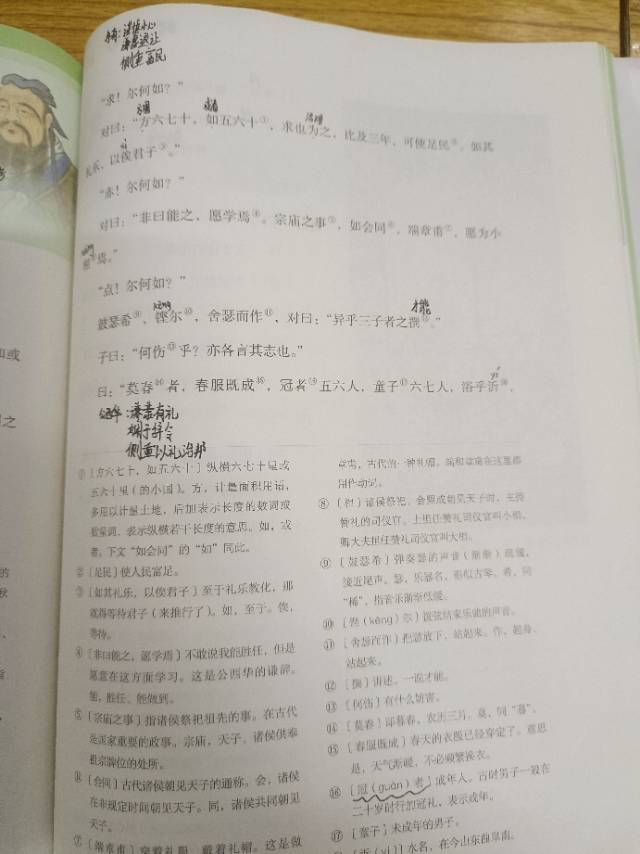 谦虚退让
侧重富民
“求！尔何如？”
对曰：“方六七十，如五六十①，求也为之，比及三年，可使足民②。如其
礼乐，以俟君子③。”
“赤！尔何如？”
对曰：“非曰能之，愿学焉④。宗庙之事⑤，如会同⑥，端章甫⑦，愿为小
相⑧焉。”
“点！尔何如？”
鼓瑟希⑨，铿尔⑩，舍瑟而作⑪，对曰：“异乎三子者之撰⑫。”
子曰：“何伤⑬乎？亦各言其志也。”
曰：“莫春⑭者，春服既成⑮，冠者⑯五六人，童子⑰六七人，浴乎沂⑱，
谦恭有礼
娴于辞令
侧重以礼治邦
①〔方六七十，如五六十〕纵横六七十里或
五六十里（的小国）。方，计量面积用语，
多用以计量土地，后加表示长度的数词或
数量词，表示纵横若干长度的意思。如，或
者。下文“如会同”的“如”同此。
②〔足民〕使人民富足。
③〔如其礼乐，以俟君子〕至于礼乐教化，那
就得等待君子（来推行了）。如，至于。俟，
等待。
④〔非曰能之，愿学焉〕不敢说我能胜任，但是
愿意在这方面学习。这是公西华的谦辞。
能，胜任、能做到。
⑤〔宗庙之事〕指诸侯祭祀祖先的事。在古代
是国家重要的政事。宗庙，天子、诸侯供奉
祖宗牌位的处所。
⑥〔会同〕古代诸侯朝见天子的通称。会，诸侯
在非规定时间朝见天子。同，诸侯共同朝见
天子。
⑦〔端章甫〕穿着礼服，戴着礼帽。这是做
章甫，古代的一种礼帽。端和章甫在这里都
用作动词。
⑧〔相〕诸侯祭祀、会盟或朝见天子时，主持
赞礼的司仪官。上里任赞礼司仪官叫小相，
卿大夫担任赞礼司仪官叫大相。
⑨〔鼓瑟希〕弹奏瑟的声音（渐渐）稀疏，
接近尾声。瑟，乐器名，形似古琴。希，同
“稀”，指音乐渐渐低缓。
⑩〔铿（kēng）尔〕拨弦结束乐曲的声音。
⑪〔舍瑟而作〕把瑟放下，站起来。作，起身、
站起来。
⑫〔撰〕讲述。一说才能。
⑬〔何伤〕有什么妨害。
⑭〔莫春〕即暮春，农历三月。莫，同“暮”。
⑮〔春服既成〕春天的衣服已经穿定了。意思
是，天气渐暖，不必频繁换衣。
⑯〔冠（guàn）者〕成年人。古时男子一般在
二十岁时行加冠礼，表示成年。
⑰〔童子〕未成年的男子。
⑱〔沂（yí）〕水名，在今山东曲阜南。